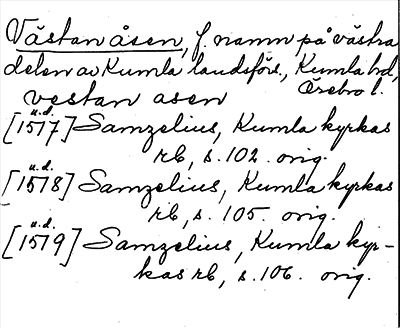 Västan åsen, f. namn på västra
delen av Kumla landsförs., Kumla hd,
Örebro l.
vestan asen
u.d.
[1517] Samzelius, Kumla kyrkas
rb, s. 102. orig.
u.d.
[1518] Samzelius, Kumla kyrkas
rb, s. 105. orig.
u.d.
[1519] Samzelius, Kumla kyr-
kas rb, s. 106. orig.